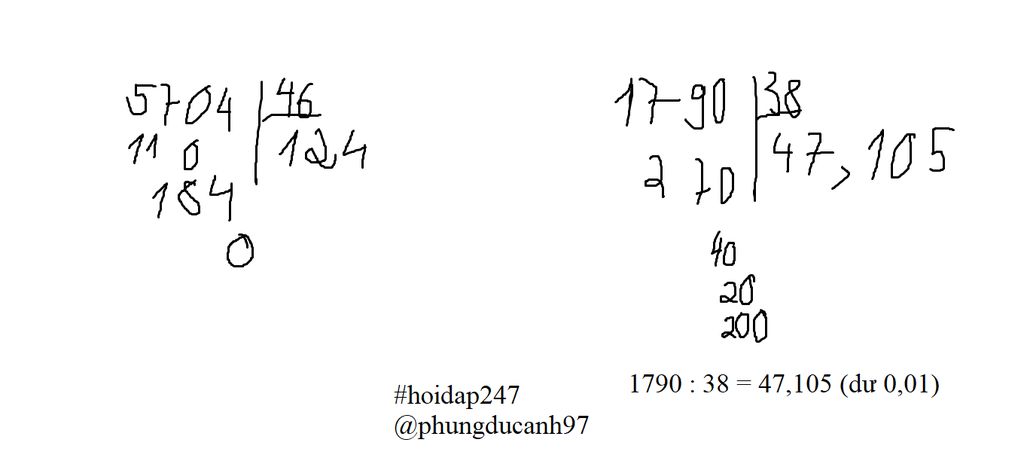 5704 46
110 124
184
0
1790 38
270 47,105
40
20
200
1790 : 38 = 47,105 (dư 0,01)
#hoidap247
@phungducanh97